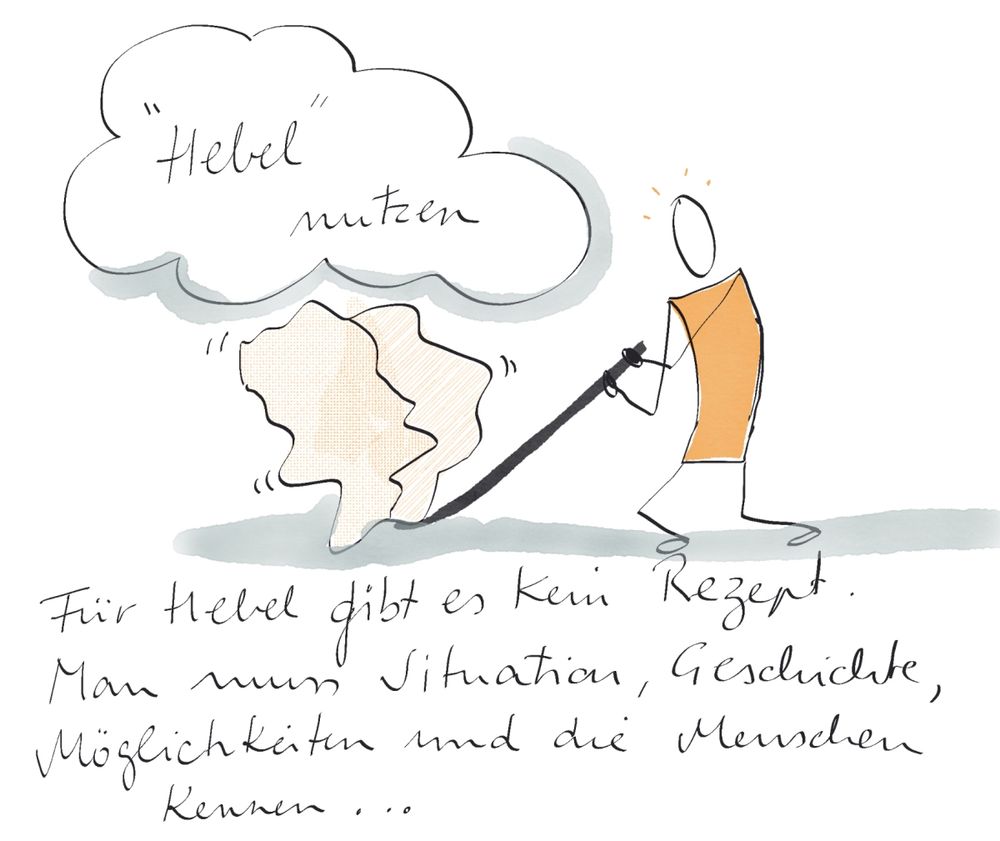 "Hebel"
nutzen
Für Hebel gibt es kein Rezept.
Man muss Situation, Geschichte,
Möglichkeiten und die Menschen
kennen...